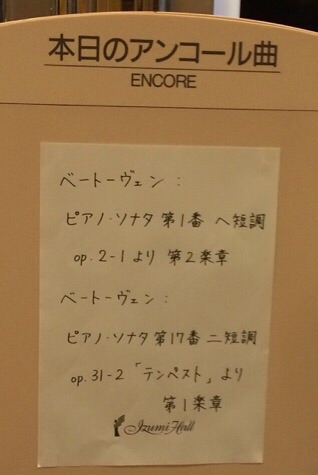 本日のアンコール曲
ENCORE
ベートーヴェン：
ピアノ・ソナタ 第1番 ヘ短調
op. 2-1 より 第2楽章
ベートーヴェン：
ピアノ・ソナタ 第17番 ニ短調
op. 31-2 「テンペスト」より
第1楽章
Izumi Hall